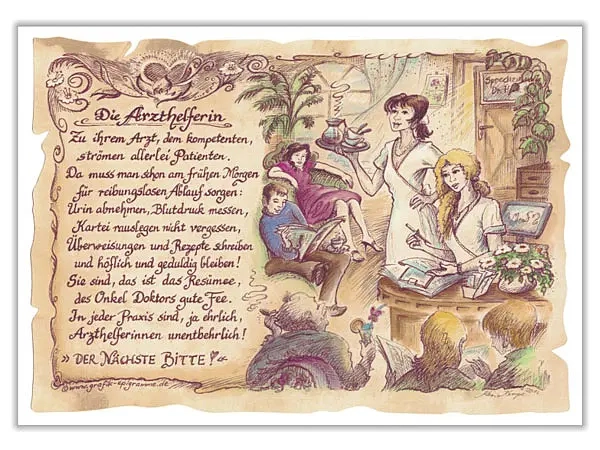 Die Arzthelferin
Zu ihrem Arzt, dem kompetenten,
strömen allerlei Patienten.
Da muss man schon am frühen Morgen
für reibungslosen Ablauf sorgen:
Urin abnehmen, Blutdruck messen,
Kartei rauslegen nicht vergessen,
Überweisungen und Rezepte schreiben
und höflich und geduldig bleiben!
Sie sind, das ist das Resümee,
des Onkel Doktors gute Fee.
In jeder Praxis sind, ja ehrlich,
Arzthelferinnen unentbehrlich!
» DER NÄCHSTE BITTE! «
©www.grafik-epigramme.de